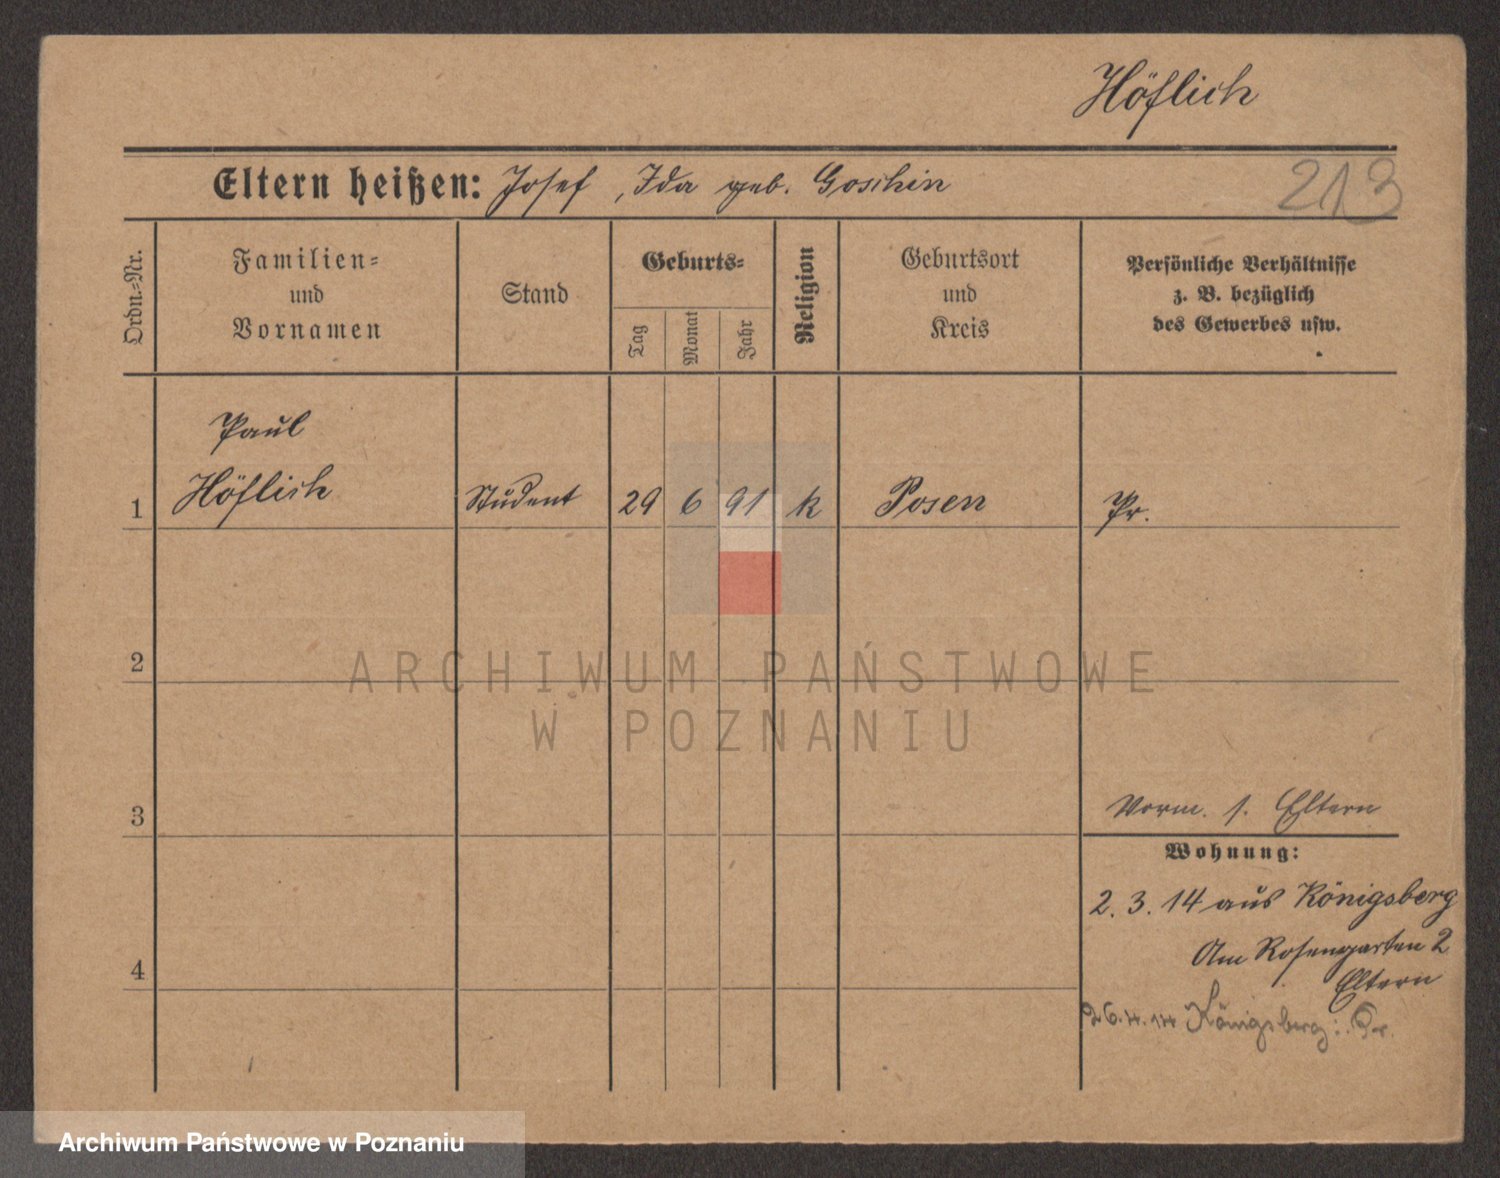 Höflich
Eltern heißen: Josef, Ida geb. Goschin
213
Ordn.=Nr.
Familien=
und
Vornamen
Stand
Geburts=
Tag
Monat
Jahr
Religion
Geburtsort
und
Kreis
Persönliche Verhältnisse
z. B. bezüglich
des Gewerbes usw.
Paul
1 Höflich Student 29 6 91 k Posen Pr.
2
ARCHIWUM PAŃSTWOWE
W POZNANIU
3
Vorm. s. Eltern
Wohnung:
2. 3. 14 aus Königsberg
Am Rosengarten 2
Eltern
4
26.4.14 Königsberg i. Pr.
Archiwum Państwowe w Poznaniu